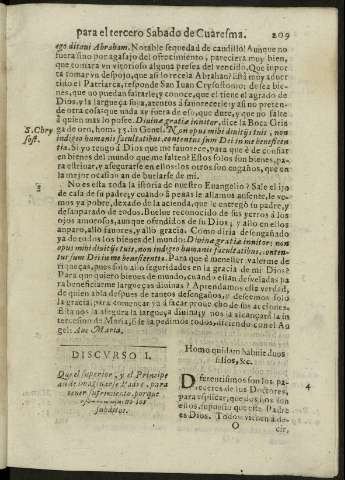 para el tercero Sabado de Cuaresma. 209
ego ditaui Abraham. Notable sequedad de caudillo! Aunque no
fuera sino por agasajo del ofrecimiento, pareciera muy bien,
que tomara vn vitorioso alguna presea del vencido. Que importa
tomar vn despojo, que assi lo recela Abrahan? Està muy aduertido
el Patriarca, responde San Iuan Crysostomo: desea bienes,
que no puedan faltarle, y conoce, que el tiene el agrado de
Dios, y la largueça suya, atentos à fauorecerle; y assi no pretende
otra cosa que nada ay fuera de eso, que dure, y que no falte
à quien mas lo posee. Diuina gratia innitor, dice la Boca Griega
S. Chry de oro, hom. 35. in Genes. Non opus mihi diuitijs tuis, non
sost. indigeo humanis facultatibus, contentus sum Dei in me beneficentia.
Si yo tengo à Dios que me fauorece, para que è de confiar
en bienes del mundo que me falten? Essos solos son bienes, para
estriuar, y asegurarse en ellos: los otros son engaños, que en
la mejor ocasion an de burlarse de mi.
3 No es esta toda la istoria de nuestro Euangelio? Sale el ijo
de casa de su padre, y cuando à penas le allamos ausente, le vemos
ya pobre, dexado de la acienda, que le entregò su padre, y
desanparado de todos. Buelue reconocido de sus yerros à los
ojos amorosos, aunque ofendidos de su Dios; y allò en ellos
anparo, allò fauores, y allò gracia. Como diria desengañado
ya de todos los bienes del mundo: Diuina gratia innitor: non
opus mihi diuitijs tuis, non indigeo humanis facultatibus, contentus
sum Dei in me beneficentia. Para que è menester valerme de
riqueças, pues soi o alio siguridades en la gracia de mi Dios?
Para que quiero bienes de mundo, cuando estan desveladas para
beneficiarme largueças diuinas? Aprendamos esta verdad,
de quien aba despues de tantos desengaños, y deseemos solo
la gracia, para començar ya à sacar prouecho de sus acciones.
Esta nos la asegura la largueça diuina; y nos la alcançarà la intercesion
de Maria, si se la pedimos todos, diciendo con el Angel:
Aue Maria.
DISCVRSO I.
Que el superior, y el Principe
an de imaginarse Padre, para
tener sufrimiento, porque
no los
subditos.
Homo quidam habuit duos
filios, &c.
Diferentissimos son los pareceres
de los Doctores, 4
para esplicar, que dos ijos son
estos, supuesto que este Padre
es Dios. Todos vienen à de-
O cir,